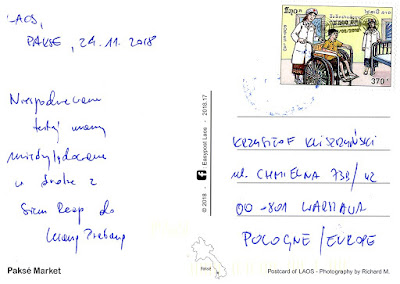 LAOS,
PAKSE, 24.11.2018
tutaj mamy
międzylądowanie
w drodze z
Siem Reap do
Luang Prabang
Paksé Market
© 2018 - Easypost Laos - 2018.17
Paksé
370
KRZYSZTOF
ul. CHMIELNA 73B/42
00-801 WARSZAWA
POLOGNE/EUROPE
Postcard of LAOS - Photography by Richard M.